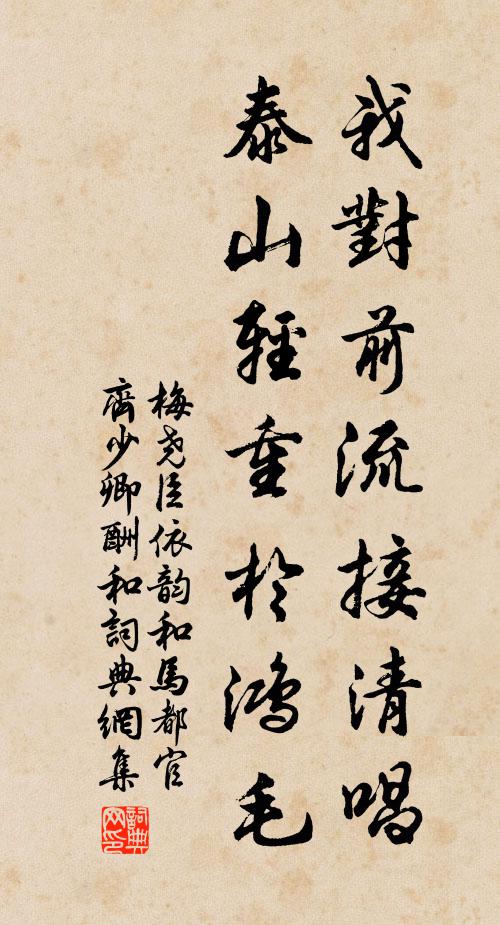 我對前流接清唱
泰山輕重於鴻毛
梅堯臣依韵和馬都官
齊少卿酬和詞典網集
詞典网印